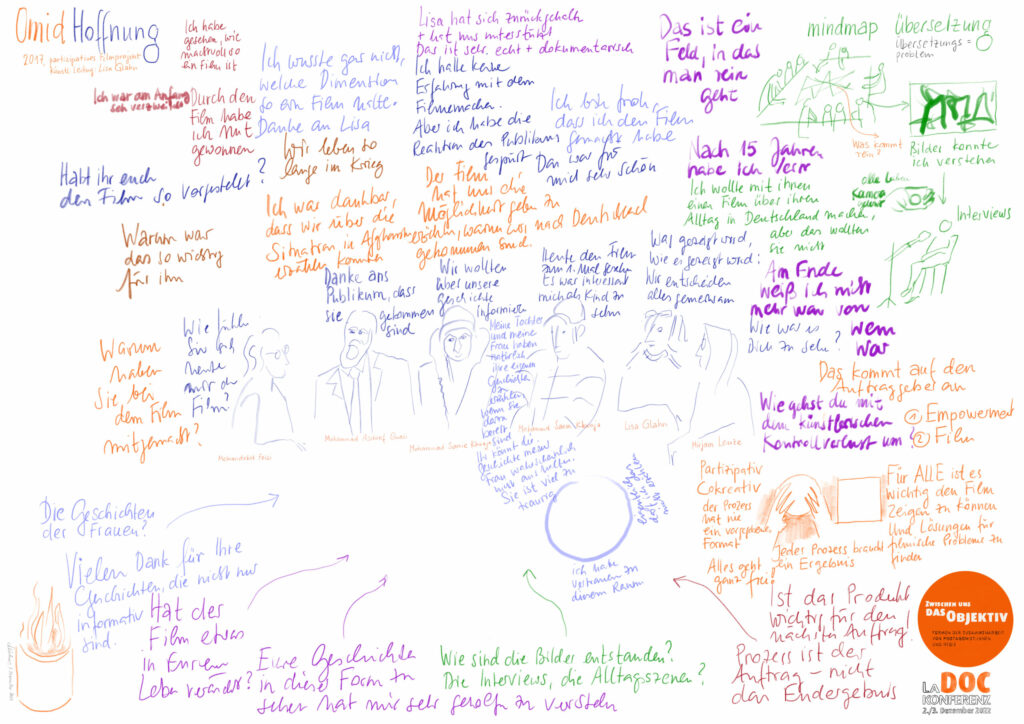 Omid Hoffnung
2017, partizipatives Filmprojekt
künstl. Leitung: Lisa Glahn
Ich habe
gesehen, wie
machtvoll so
ein Film ist
Ich war am Anfang
sehr verzweifelt
Durch den
Film habe
ich Mut
gewonnen
Ich wusste gar nicht,
welche Dimension
so ein Film hatte.
Danke an Lisa
Lisa hat sich zurückgehalten
+ hat uns unterstützt
Das ist sehr echt + dokumentarisch
Ich hatte keine
Erfahrung mit dem
Filmemachen.
Aber ich habe die
Reaktion des Publikums
gespürt
Das war für
mich sehr schön
Ich bin froh,
dass ich den Film
gemacht habe
Das ist ein
Feld, in das
man rein
geht
mindmap
übersetzung
Übersetzungs=
problem
Was kommt
rein?
Bilder konnte
ich verstehen
alle haben
Kamera
gelernt
Interviews
Habt ihr euch
den Film so vorgestellt?
Wir leben so
lange im Krieg
Ich war dankbar,
dass wir über die
Situation in Afghanistan
erzählen konnten
Der Film
hat uns die
Möglichkeit geben zu
erzählen, warum wir nach Deutschland
gekommen sind.
Nach 15 Jahren
habe ich
Ich wollte mit ihnen
einen Film über ihren
Alltag in Deutschland machen,
aber das wollten
sie nicht
Warum war
das so wichtig
für ihn
Danke ans
Publikum, dass
sie gekommen
sind
Wir wollten
über unsere
Geschichte
informieren
Heute den Film
zum 1. Mal gesehen
Es war interessant
mich als Kind zu
sehn
Was gezeigt wird,
wie es gezeigt wird:
Wir entscheiden
alles gemeinsam
Am Ende
weiß ich nicht
mehr was von
wem
war
Wie war es
Dich zu sehn?
Warum
haben
Sie bei
dem Film
mitgemacht?
Wie fühlen
Sie sich
heute
mit dem
Film?
Meine Tochter
und meine
Frau haben
natürlich
ihre eigenen
Geschichten
zu
erzählen
wenn Sie
dazu
bereit
sind
Ihr könnt die
Geschichte meiner
Frau wahrscheinlich
nicht aushalten.
Sie ist viel zu
traurig
Mohammad Sarwar Khwaja
Lisa Glahn
Mirjam Leuze
Das kommt auf den
Auftraggeber an
① Empowerment
② Film
Wie gehst du mit
dem künstlerischen
Kontrollverlust um?
Die Geschichten
der Frauen?
Vielen Dank für Ihre
Geschichten, die nicht nur
informativ
sind.
ich habe
Vertrauen zu
diesem Raum
Partizipativ
Cokreativ
der Prozess
hat nie
ein vorgegebenes
Format
Alles geht
ganz frei
Jedes Prozess braucht
ein Ergebnis
Für ALLE ist es
wichtig den Film
Zeigen zu können
Und Lösungen für
filmische Probleme zu
finden
Hat der
Film etwas
in Eurem
Leben verändert?
Eure Geschichten
in dieser Form zu
sehen hat mir sehr geholfen zu verstehen
Wie sind die Bilder entstanden?
Die Interviews, die Alltagszenen?
Ist das Produkt
wichtig für den
nächsten Auftrag!
Prozess ist der
Auftrag – nicht
das Endergebnis
Zwischen uns
das Objektiv
Formen der Zusammenarbeit
von Protagonist:innen
und Regie
LaDOC
Konferenz
2./3. Dezember 2022